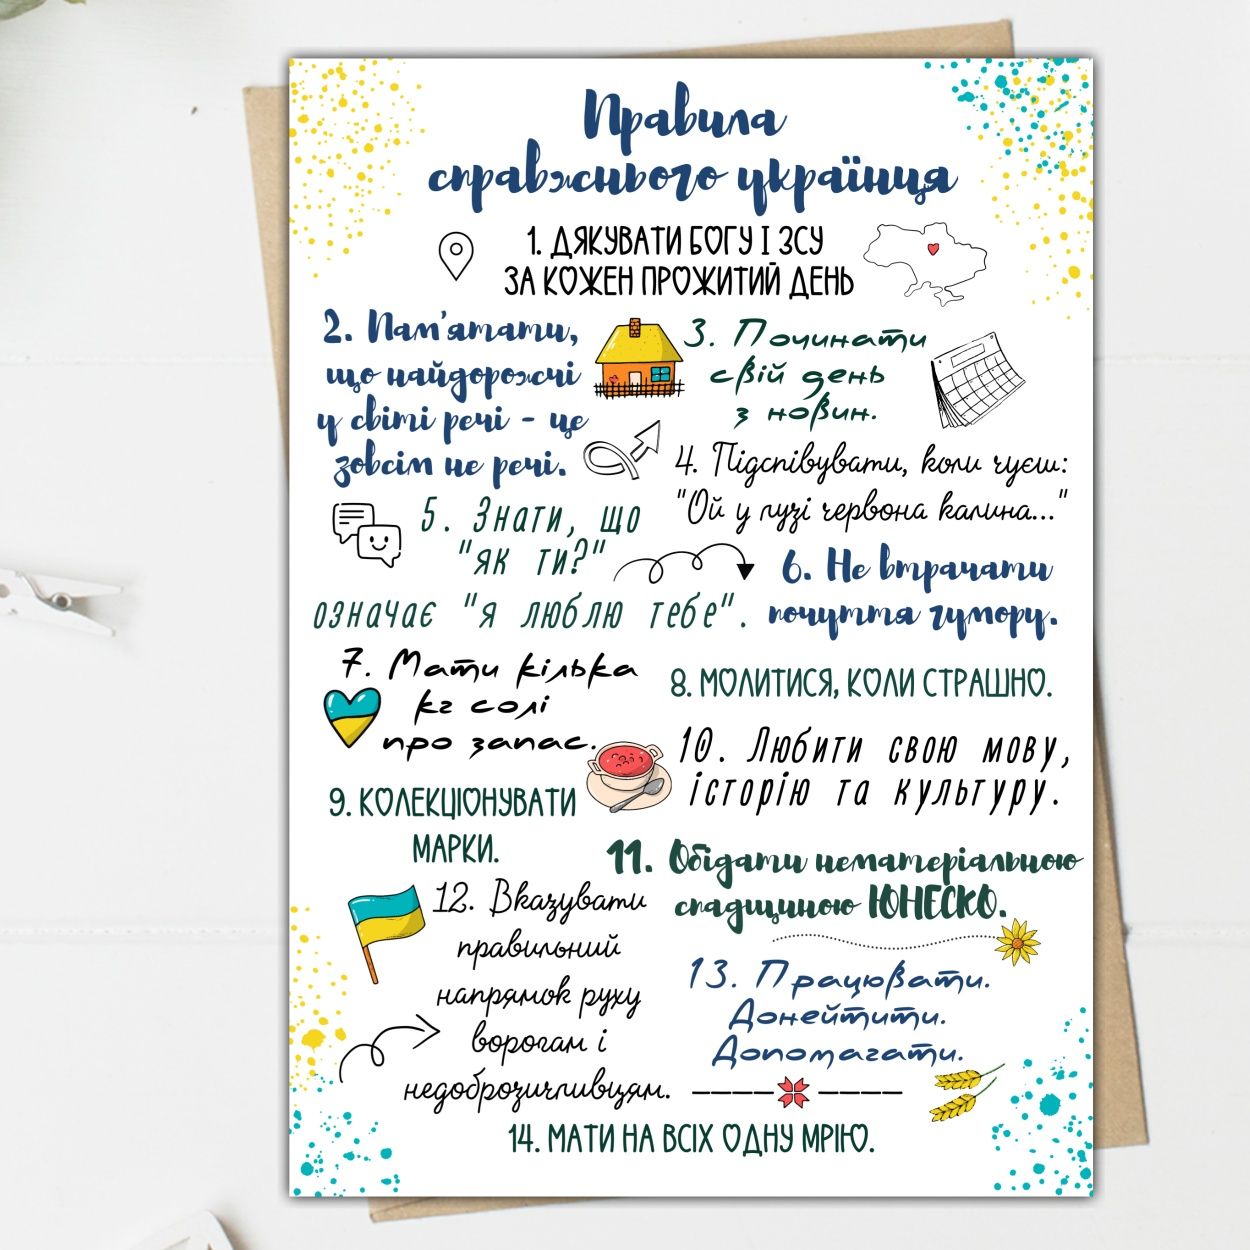 Правила
справжнього українця
1. ДЯКУВАТИ БОГУ І ЗСУ
ЗА КОЖЕН ПРОЖИТИЙ ДЕНЬ
2. Пам'ятати,
що найдорожчі
у світі речі - це
зовсім не речі.
3. Починати
свій день
з новин.
4. Підспівувати, коли чуєш:
"Ой у лузі червона калина..."
5. Знати, що
"як ти?"
означає "я люблю тебе".
6. Не втрачати
почуття гумору.
7. Мати кілька
кг солі
про запас.
8. МОЛИТИСЯ, КОЛИ СТРАШНО.
9. КОЛЕКЦІОНУВАТИ
МАРКИ.
10. Любити свою мову,
історію та культуру.
11. Обідати нематеріальною
спадщиною ЮНЕСКО.
12. Вказувати
правильний
напрямок руху
ворогам і
недоброзичливцям.
13. Працювати.
Донейтити.
Допомагати.
14. МАТИ НА ВСІХ ОДНУ МРІЮ.